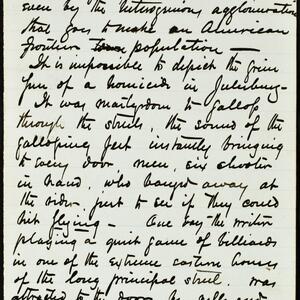 even by the heterogenious agglomeration
that goes to make an American
frontier population —
It is impossible to depict the grim
fun of a homicide in Julesburg —
It was martyrdom to gallop
through the streets, the sound of the
galloping feet instantly bringing
to every door men, six shooter
in hand, who banged away at
the rider, just to see if they could
hit flying — One day the writer
playing a quiet game of billiards
in one of the extreme eastern houses
of the long principal street, was
attracted to the door by